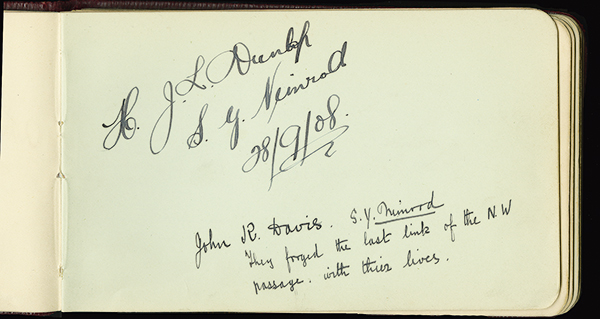 H. J. L. Dunlop
S. Y. Nimrod
28/9/08.
John K. Davis. S.Y. Nimrod
They forged the last link of the N.W
passage. with their lives.